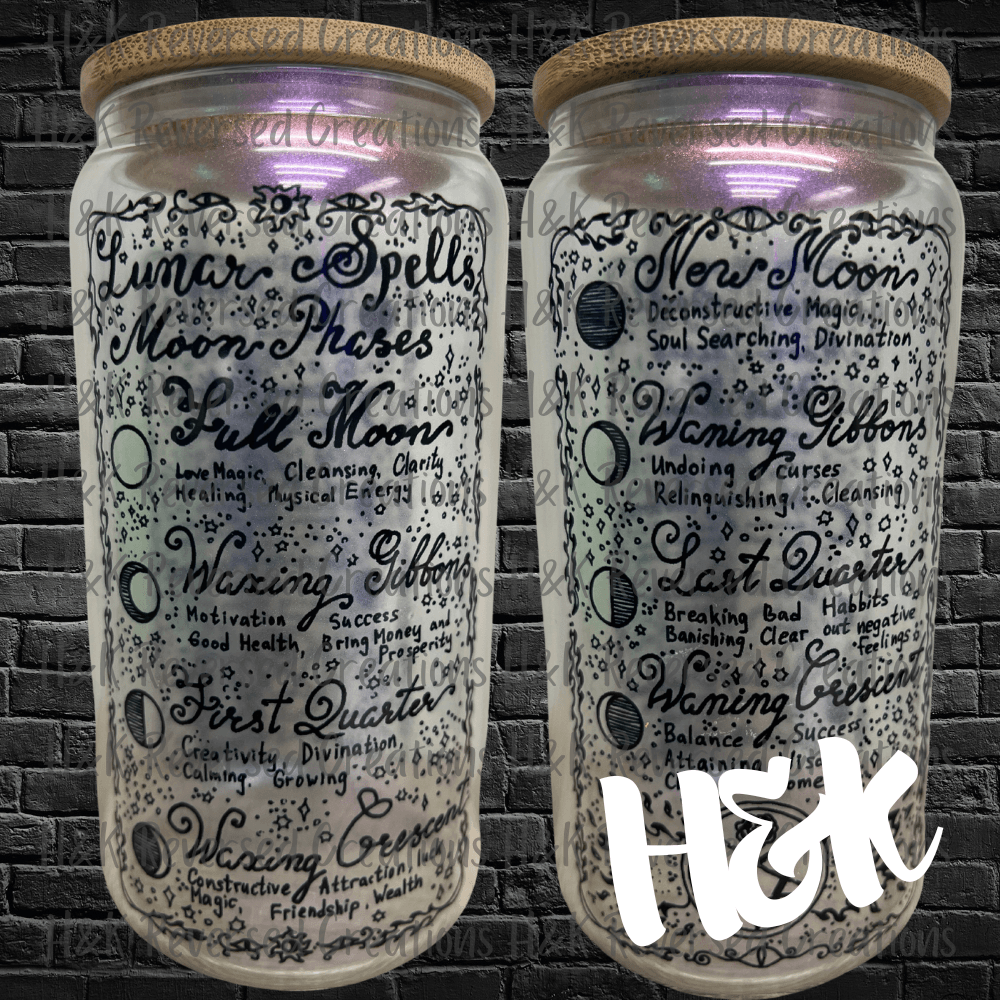 H&K Reversed Creations
Lunar Spells
Moon Phases
Full Moon
Love Magic, Cleansing, Clarity
Healing, Physical Energy
Waxing Gibbons
Motivation Success
Good Health, Bring Money and
Prosperity
First Quarter
Creativity, Divination,
Calming, Growing
Waxing Crescent
Constructive Attraction, luck
Magic, Friendship, Wealth
H&K Reversed Creations
New Moon
Deconstructive Magic,
Soul Searching, Divination
Waning Gibbons
Undoing curses
Relinquishing, Cleansing
Last Quarter
Breaking Bad Habbits
Banishing, Clear out negative
feelings
Waning Crescent
Balance Success
Attaining
H&K